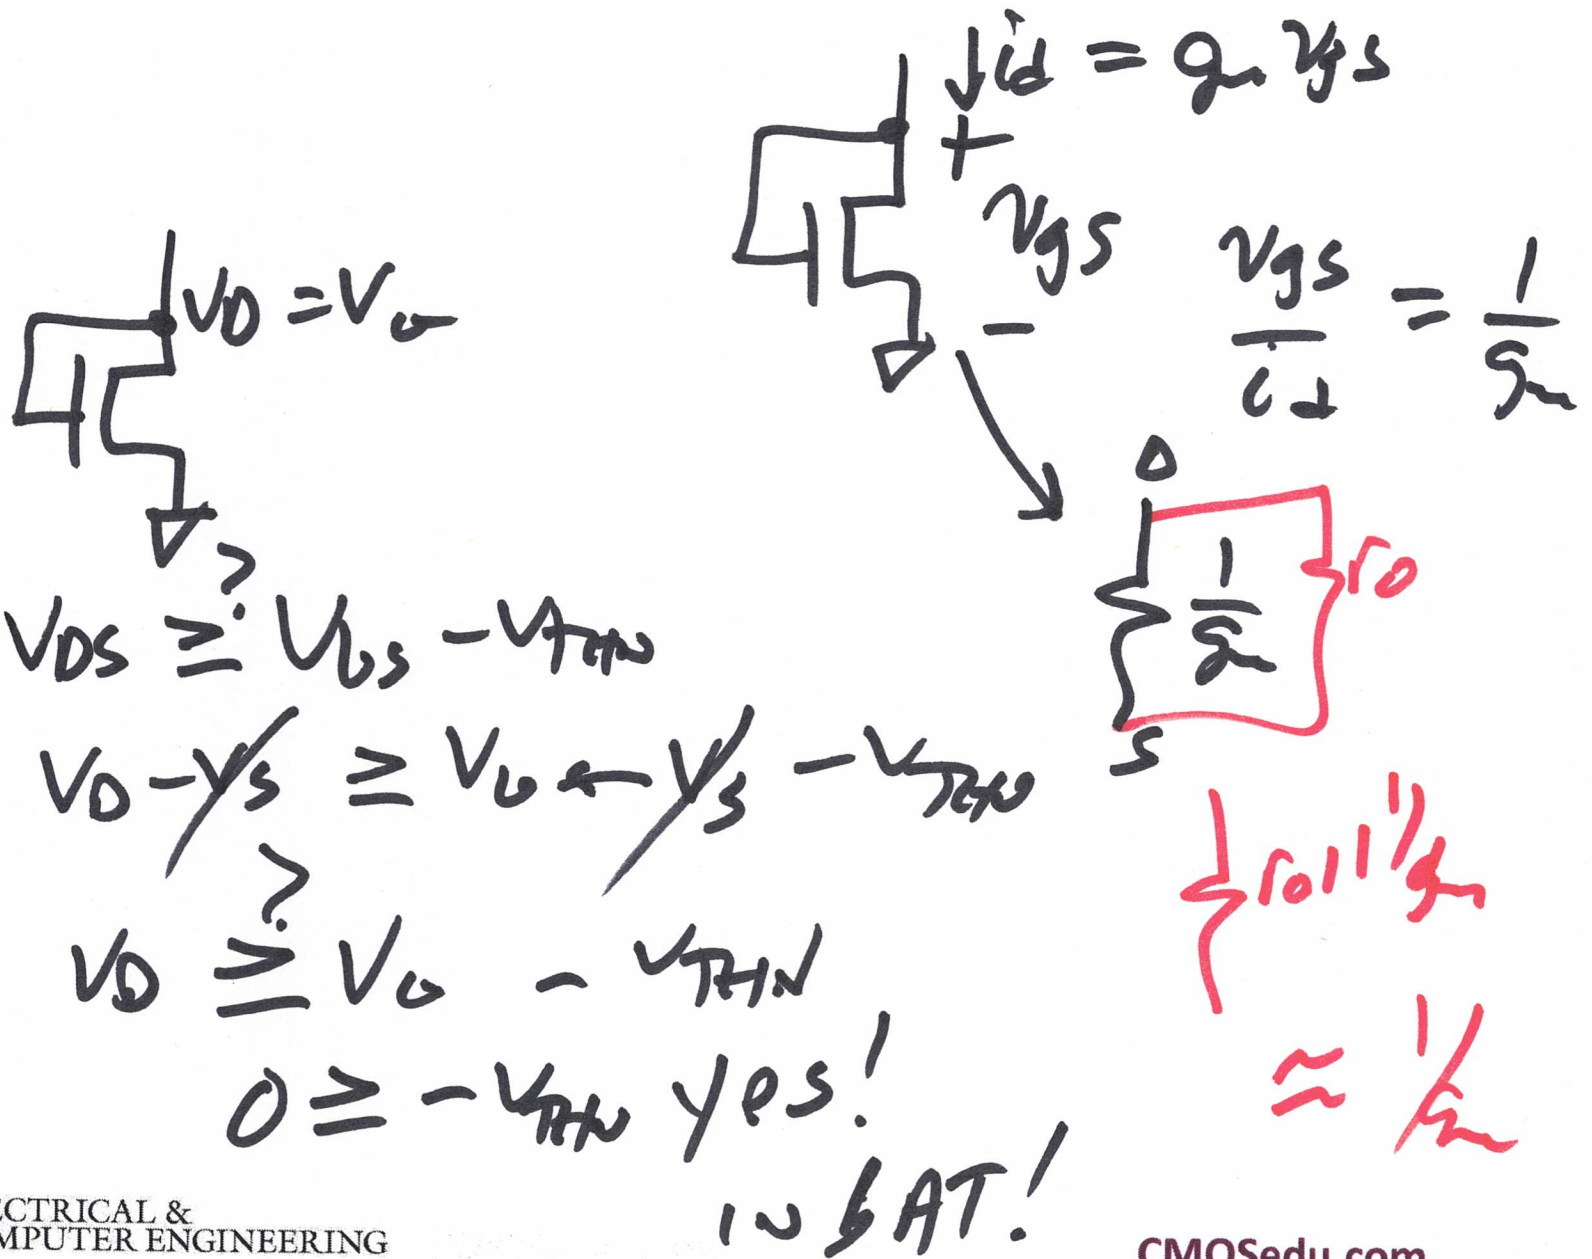 id = gm vgs
+
vgs
-
vgs/id = 1/gm
VD = VG
VDS ≥? VGS - VTHN
VD - VS ≥ VG - VS - VTHN
VD ≥? VG - VTHN
0 ≥ - VTHN yes!
IN SAT!
D
1/gm
ro
S
ro || 1/gm
≈ 1/gm
ECTRICAL &
MPUTER ENGINEERING
CMOSedu.com